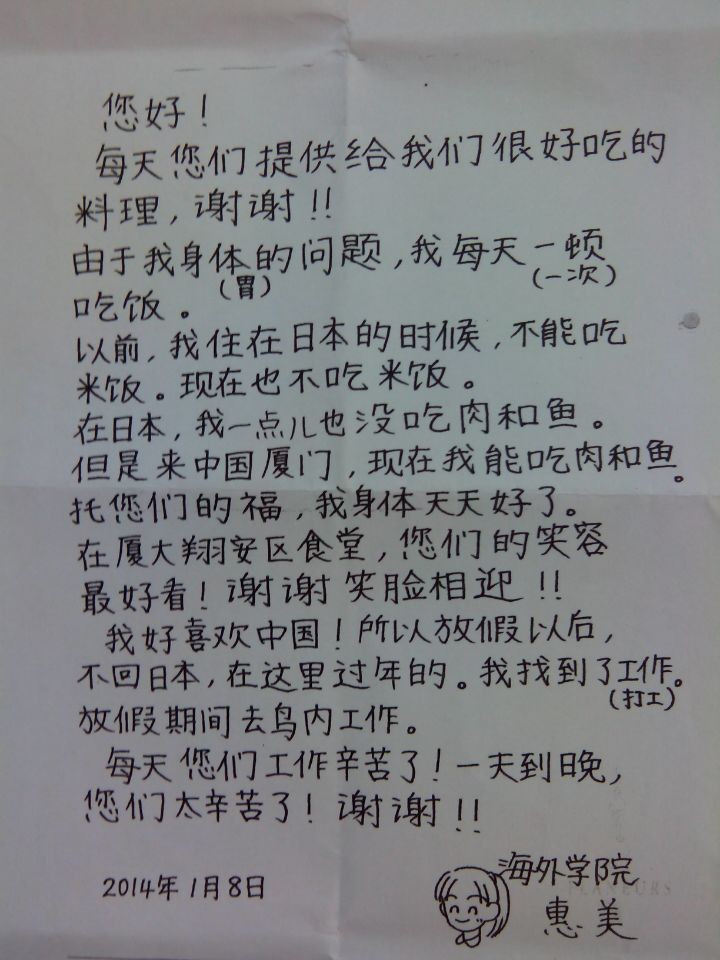 您好！
每天您们提供给我们很好吃的
料理，谢谢！！
由于我身体的问题，我每天一顿
（胃）（一次）
吃饭。
以前，我住在日本的时候，不能吃
米饭。现在也不吃米饭。
在日本，我一点儿也没吃肉和鱼。
但是来中国厦门，现在我能吃肉和鱼。
托您们的福，我身体天天好了。
在厦大翔安区食堂，您们的笑容
最好看！谢谢笑脸相迎！！
我好喜欢中国！所以放假以后，
不回日本，在这里过年的。我找到了工作。
（打工）
放假期间去鸟内工作。
每天您们工作辛苦了！一天到晚，
您们太辛苦了！谢谢！！
海外学院
2014年1月8日
惠美